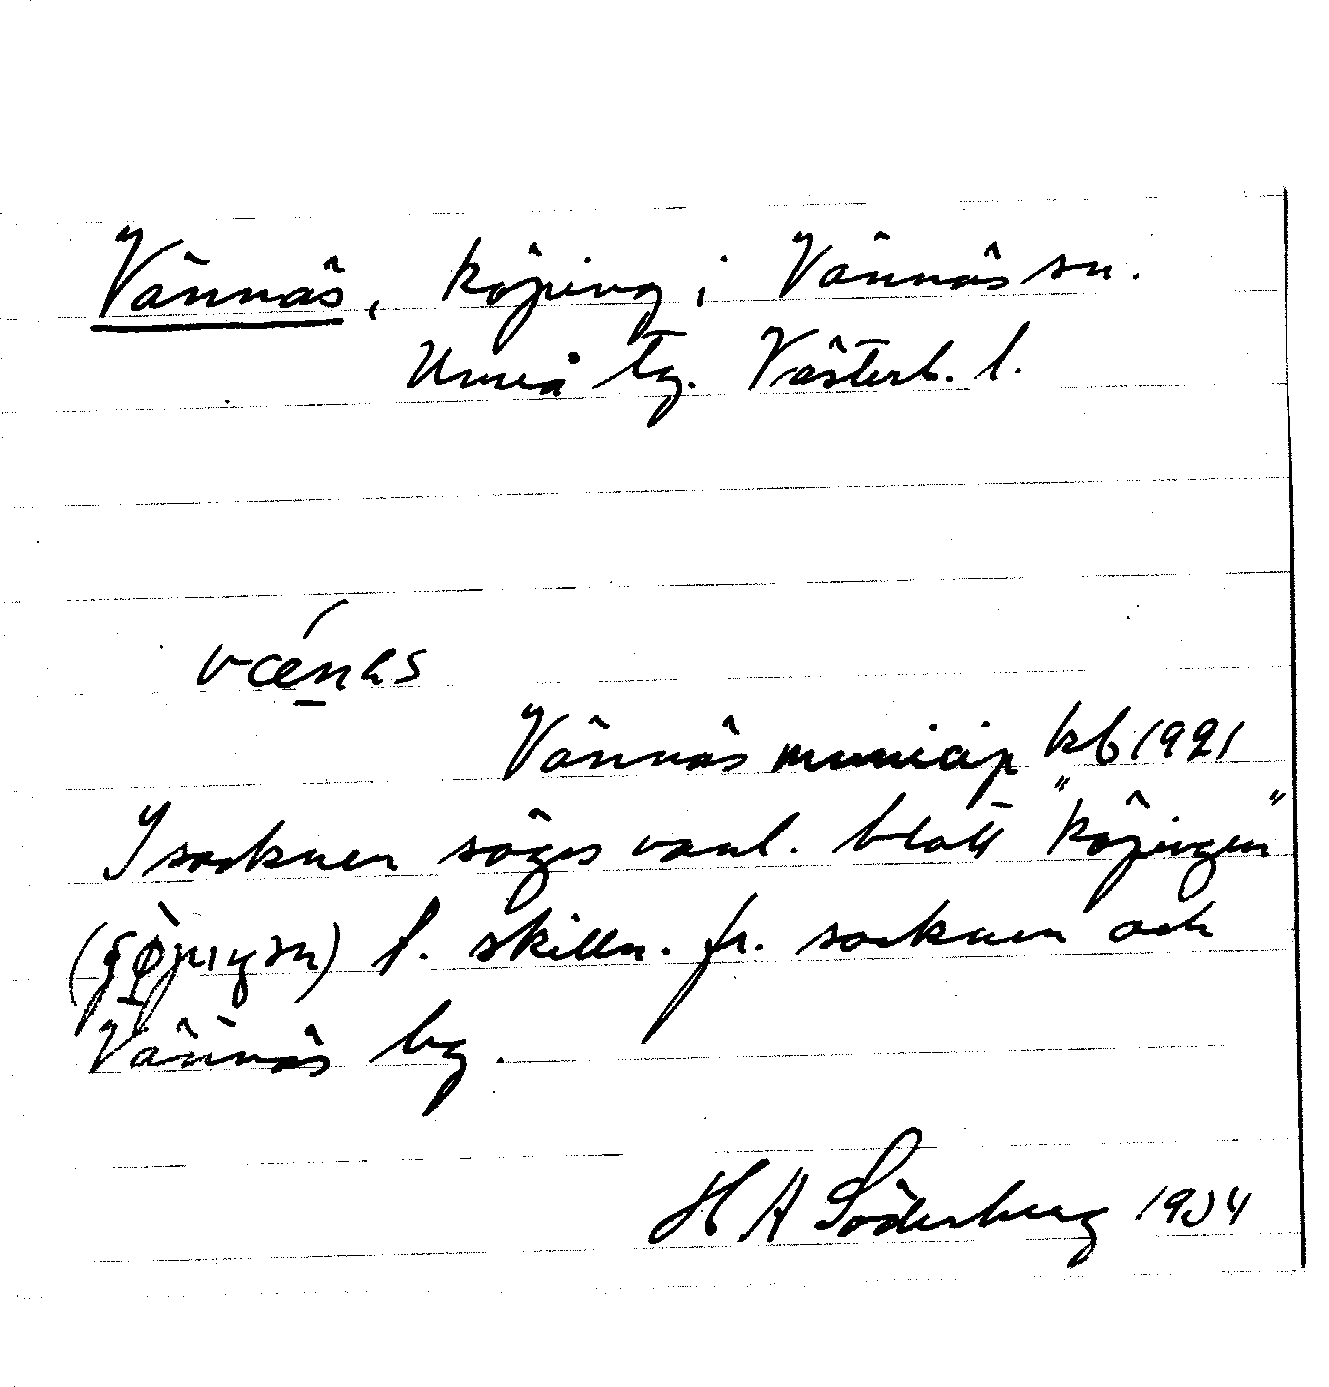 Vännäs, köping i Vännäs sn.
Umeå tg. Västerb. l.
Vännäs municip kb 1921
I socknen säges vanl. blott "köpingen"
f. skilln. fr. socknen och
Vännäs by.
H A Söderberg 1934